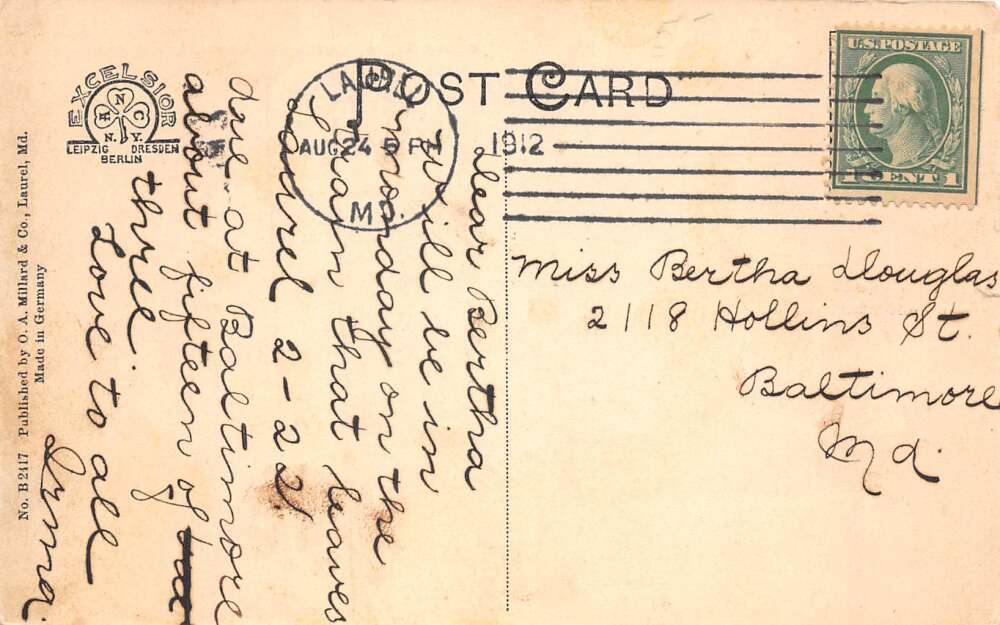 POST CARD
EXCELSIOR
ANCH
N.Y.
LEIPZIG DRESDEN
BERLIN
LAUREL
AUG 24 5 PM
MD.
1912
U.S. POSTAGE
1 CENT 1
Miss Bertha Douglas
2118 Hollins St.
Baltimore
Md.
Dear Bertha
Will be in
monday on the
train that leaves
Laurel 2-22
due at Baltimore
about fifteen of
three.
Love to all
Irma.
No. B 2417 Published by O. A. Millard & Co., Laurel, Md.
Made in Germany